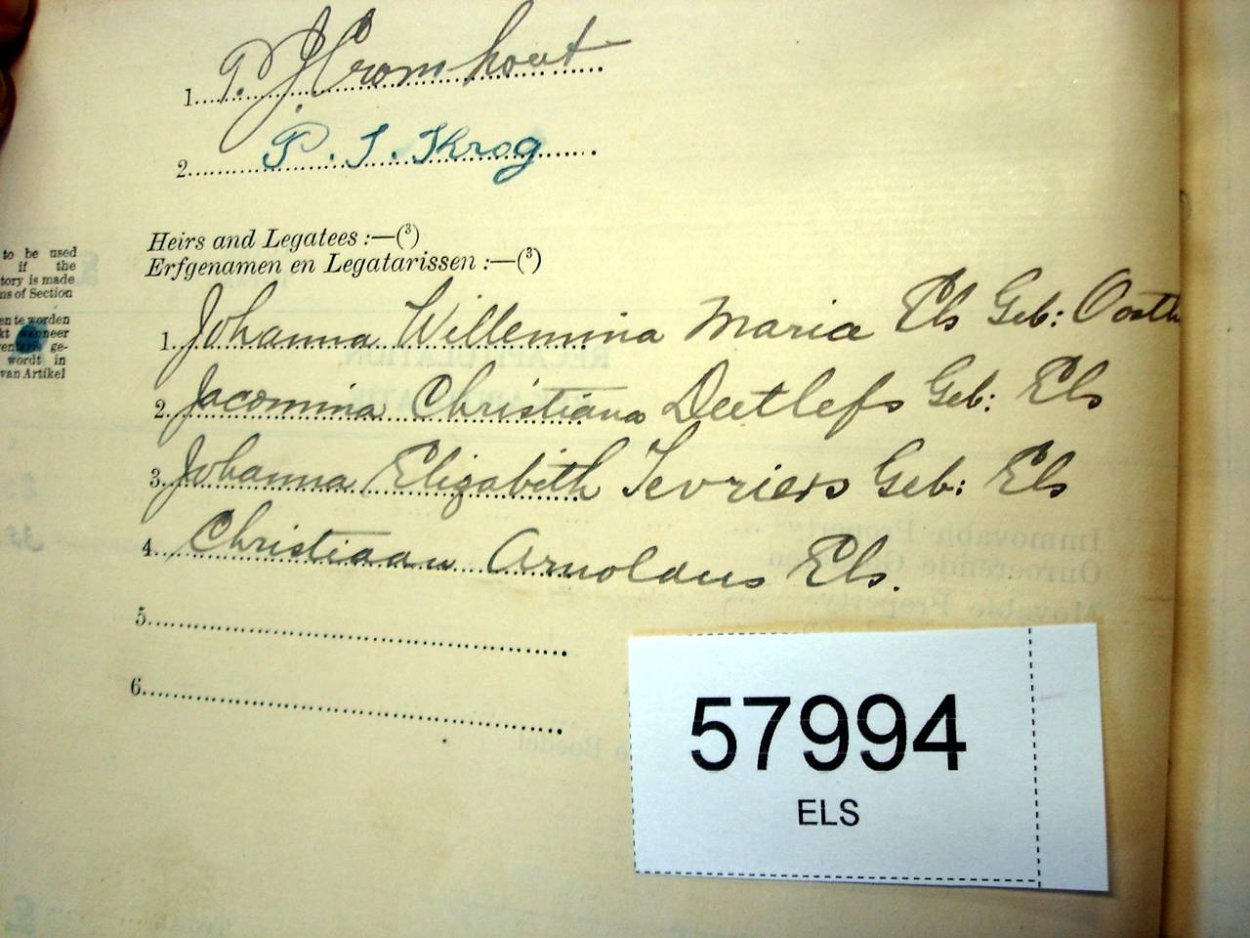 1. P. J. Cromhout
2. P. J. Krog
to be used
if the
tory is made
ns of Section
en te worden
kt wanneer
ge-
wordt in
van Artikel
Heirs and Legatees :—(³)
Erfgenamen en Legatarissen :—(³)
1. Johanna Willemina Maria Els Geb: Oosth
2. Jacomina Christiana Deetlefs Geb: Els
3. Johanna Elizabeth Fevriers Geb: Els
4. Christiaan Arnoldus Els.
5.
6.
57994
ELS